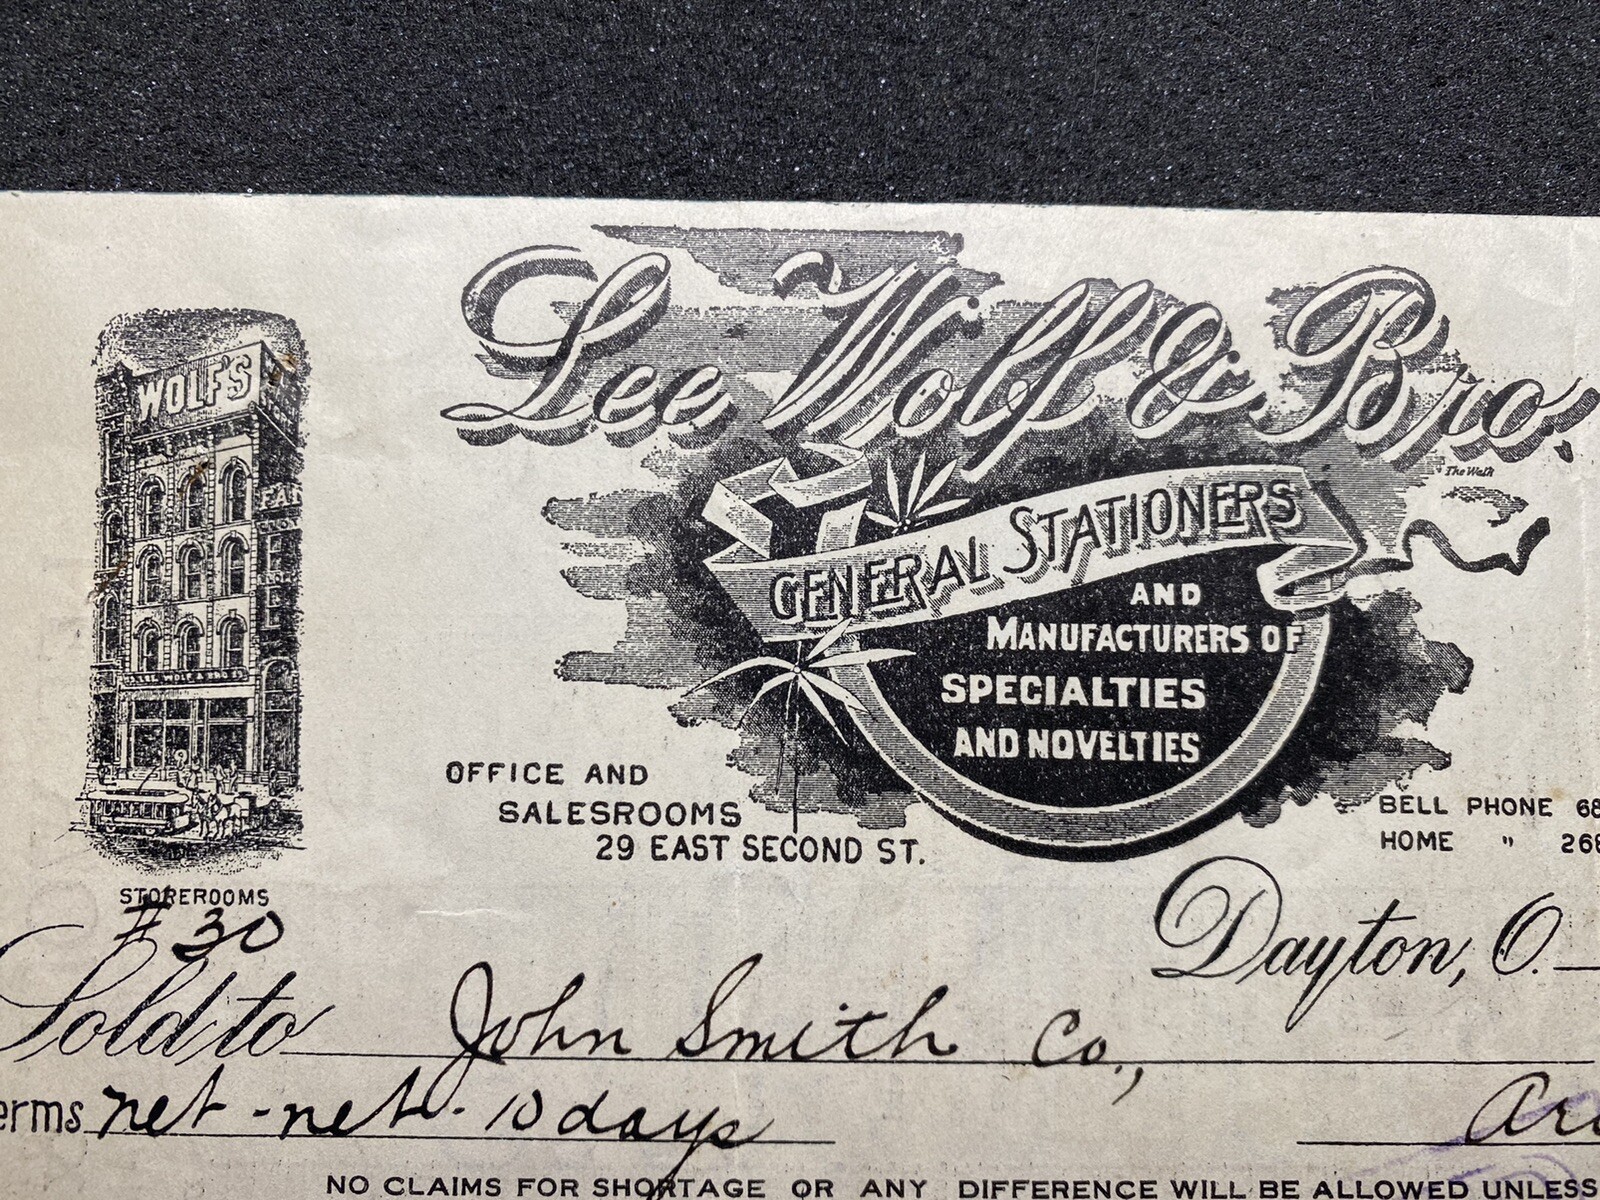 Lee Wolf & Bro.
WOLF'S
GENERAL STATIONERS
AND
MANUFACTURERS OF
SPECIALTIES
AND NOVELTIES
LEE WOLF & BRO
OFFICE AND
SALESROOMS
29 EAST SECOND ST.
BELL PHONE 68
HOME " 268
STOREROOMS
# 30
Dayton, O.
Sold to John Smith Co.,
erms net - net - 10 days
NO CLAIMS FOR SHORTAGE OR ANY DIFFERENCE WILL BE ALLOWED UNLESS